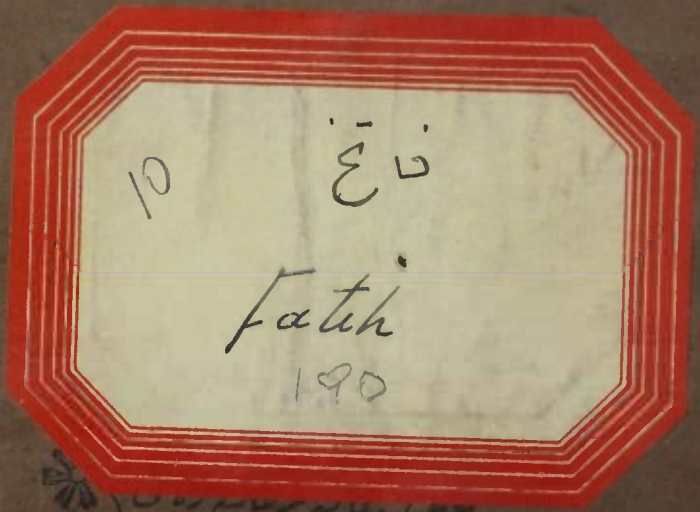 10 فاتح
Fatih
190